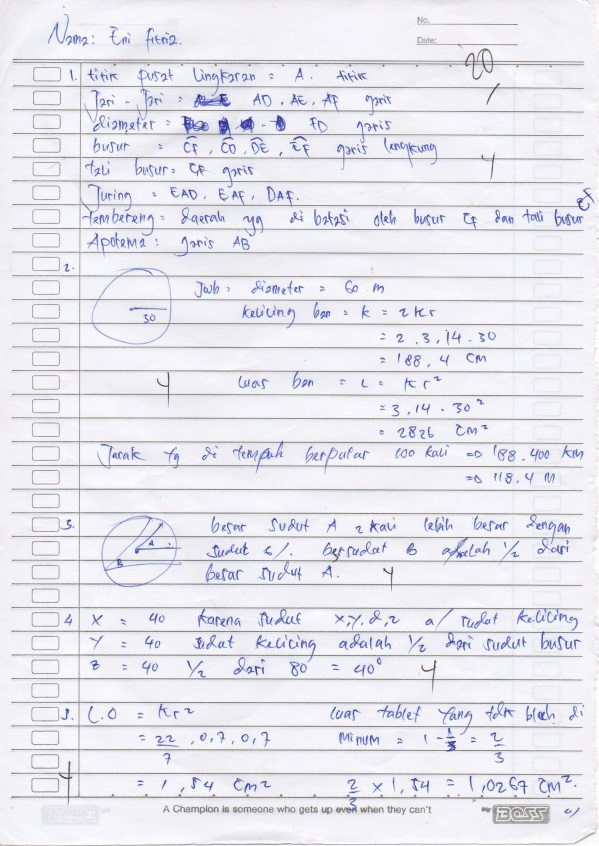 No.
Date:
Nama: Eni fitria.
20
1. titik pusat lingkaran = A. titik
Jari - Jari = AD, AE, AF garis
diameter = FD garis
busur = CF, CD, DE, EF garis lengkung
4
tali busur = CF garis
Juring = EAD, EAF, DAF.
tembereng = daerah yg di batasi oleh busur CF dan tali busur CF
Apotema = garis AB
2.
30
Jwb = diameter = 60 m
keliling ban = K = 2kr
= 2. 3,14. 30
= 188,4 CM
4
luas ban = L = kr²
= 3,14. 30²
= 2826 CM²
Jarak yg di tempuh berputar 100 kali => 188.400 KM
=> 118.4 M
3.
A
B
besar sudut A 2 kali lebih besar dengan
sudut B bersudut B adalah 1/2 dari
besar sudut A. 4
4 X = 40 karena sudut x,y,d,z a/ sudut keliling
Y = 40 sudut keliling adalah 1/2 dari sudut busur
Z = 40 1/2 dari 80 = 40° 4
5. L.O = kr² luas tablet yang tdk bleh di
= 22/7 . 0,7. 0,7 minum = 1 - 1/3 = 2/3
4
= 1,54 CM² 2/3 x 1,54 = 1,0267 CM².
A Champion is someone who gets up even when they can't
BOSS